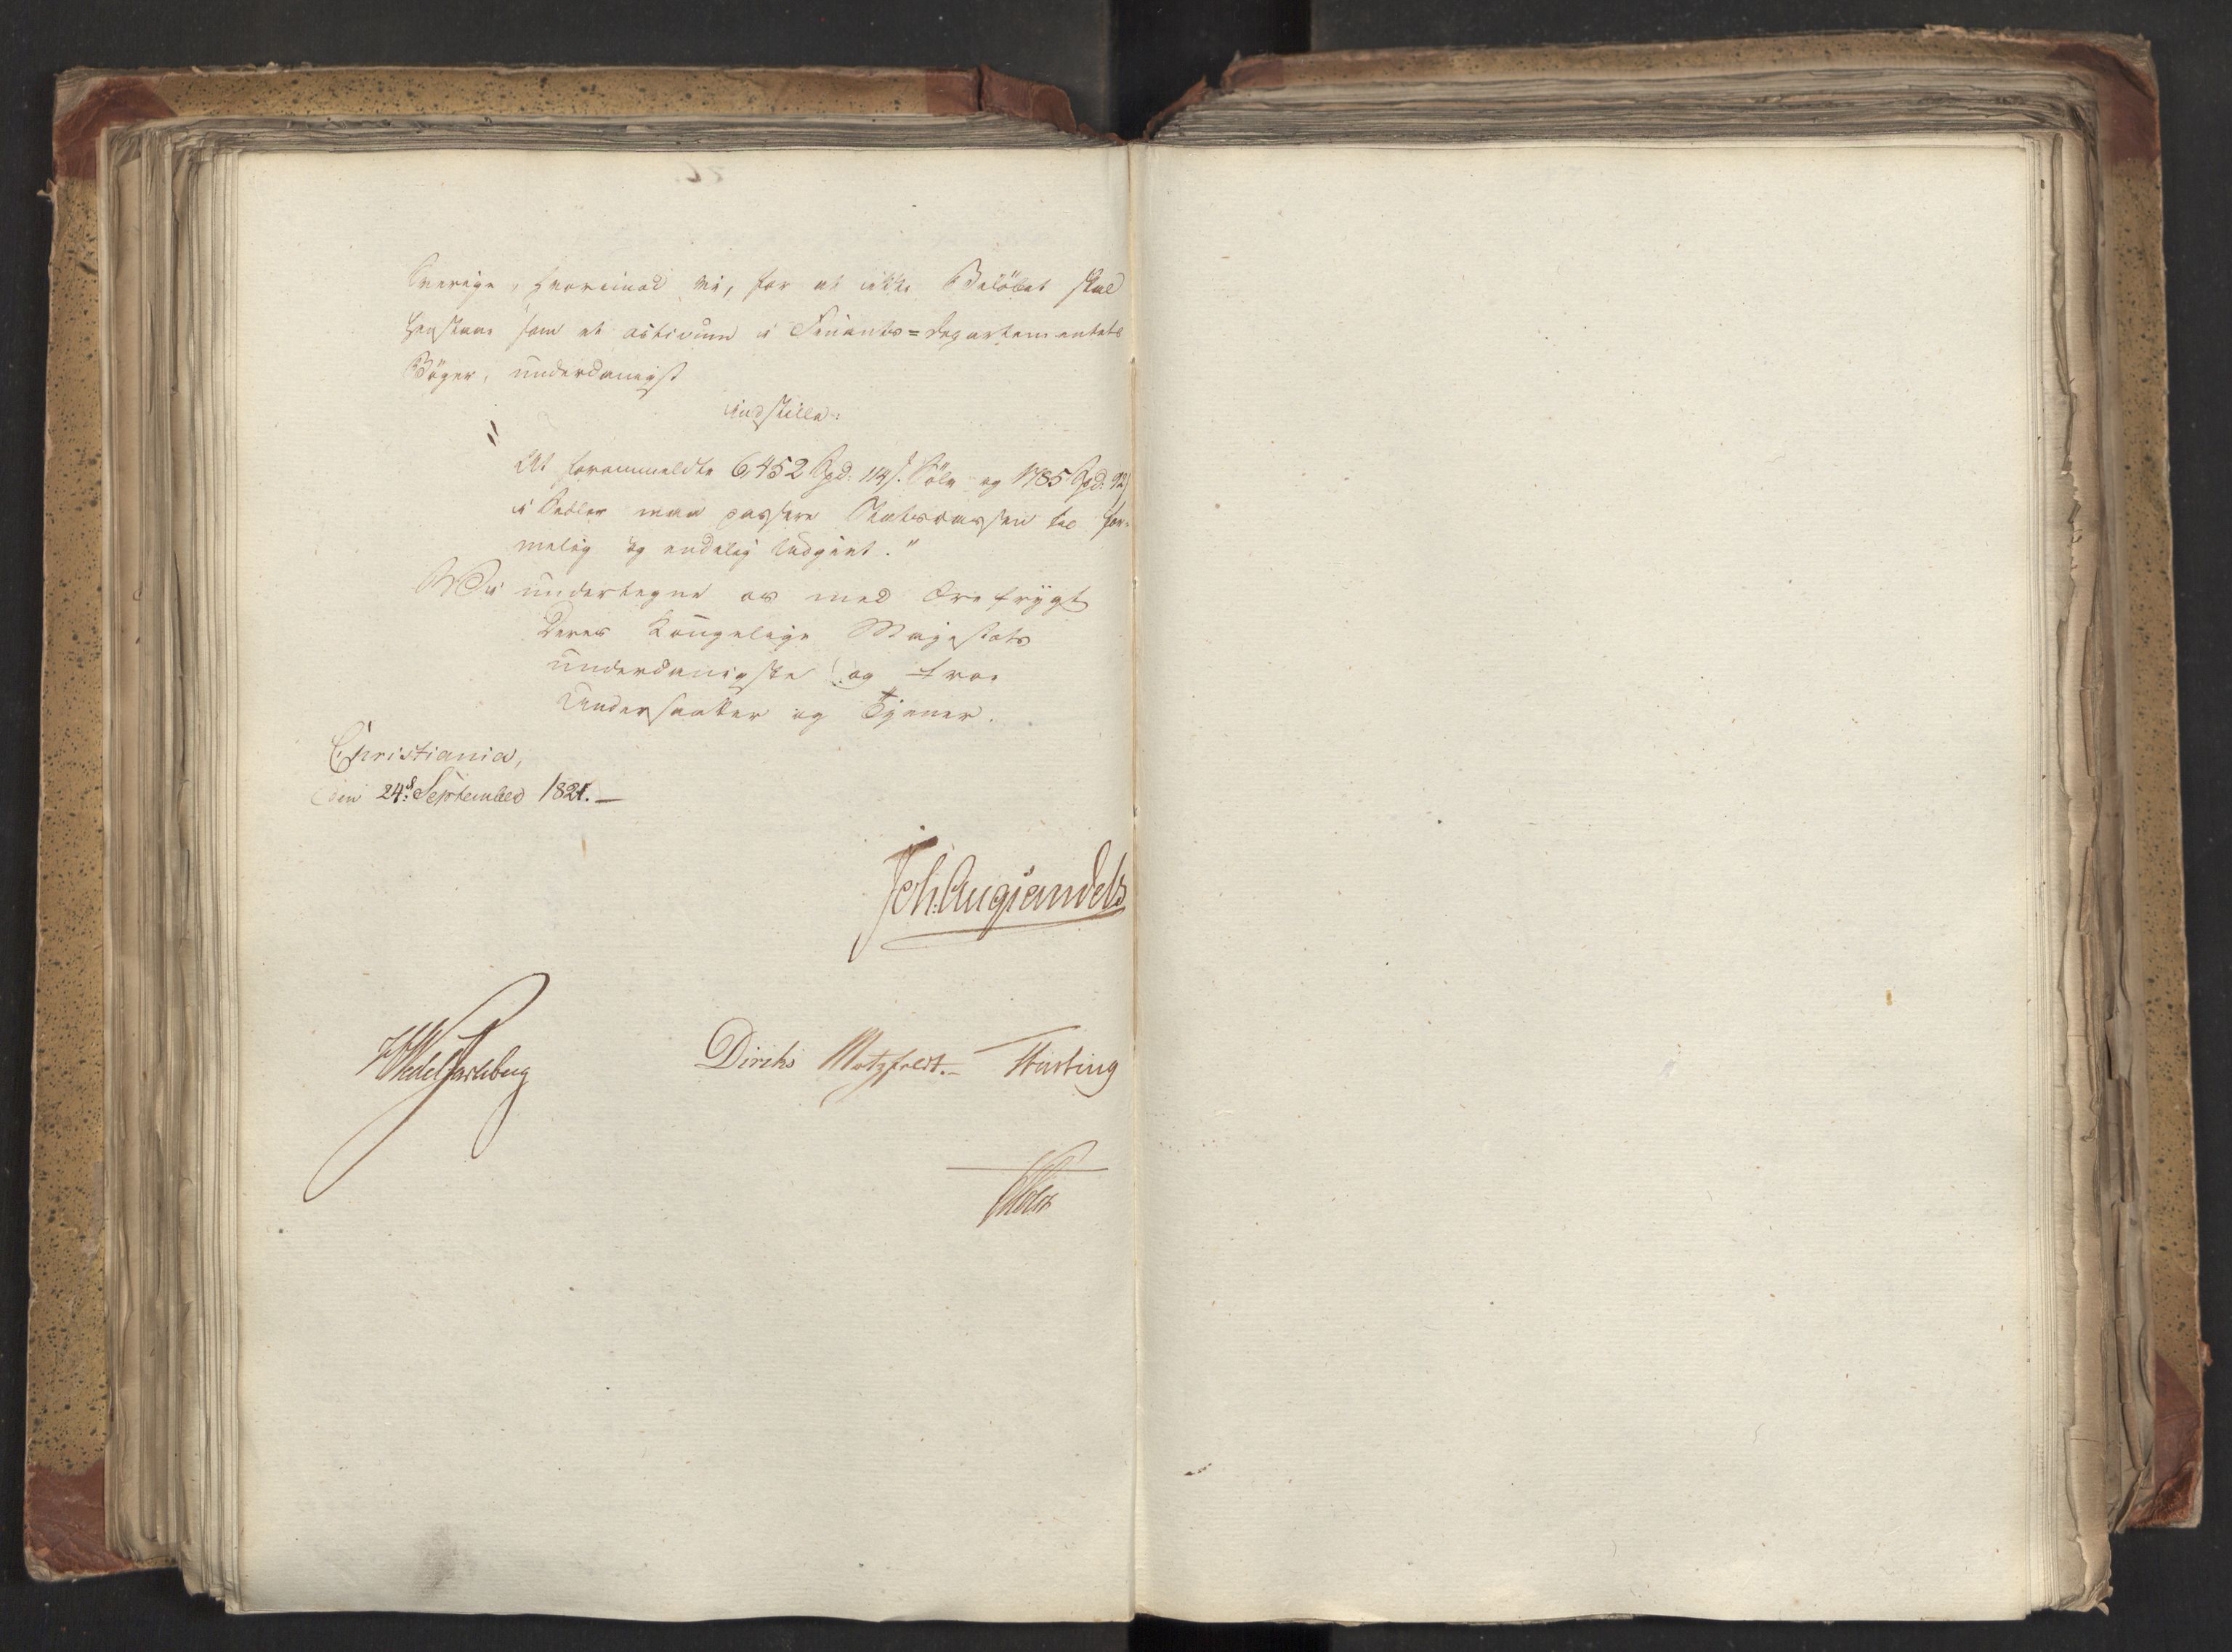 Sverige, hvorimod vi, for at ikke Beløbet skal
henstaae som et activum i Finants=Departementets
Bøger, underdanigst
indstille:
"At forommeldte 6,452 Spd. 114 s. Sølv og 1785 Spd. 92
i Sedler maa passere Statscassen til for-
melig og endelig Udgivt."
Vi undertegne os med Ærefrygt
Deres Kongelige Majestæts
underdanigste og troe
Undersaatter og Tjener.
Christiania,
den 24d: September 1821.—
Joh. Aug Sandels
HWedel Jarlsberg
Diriks Motzfeldt.— Hasting